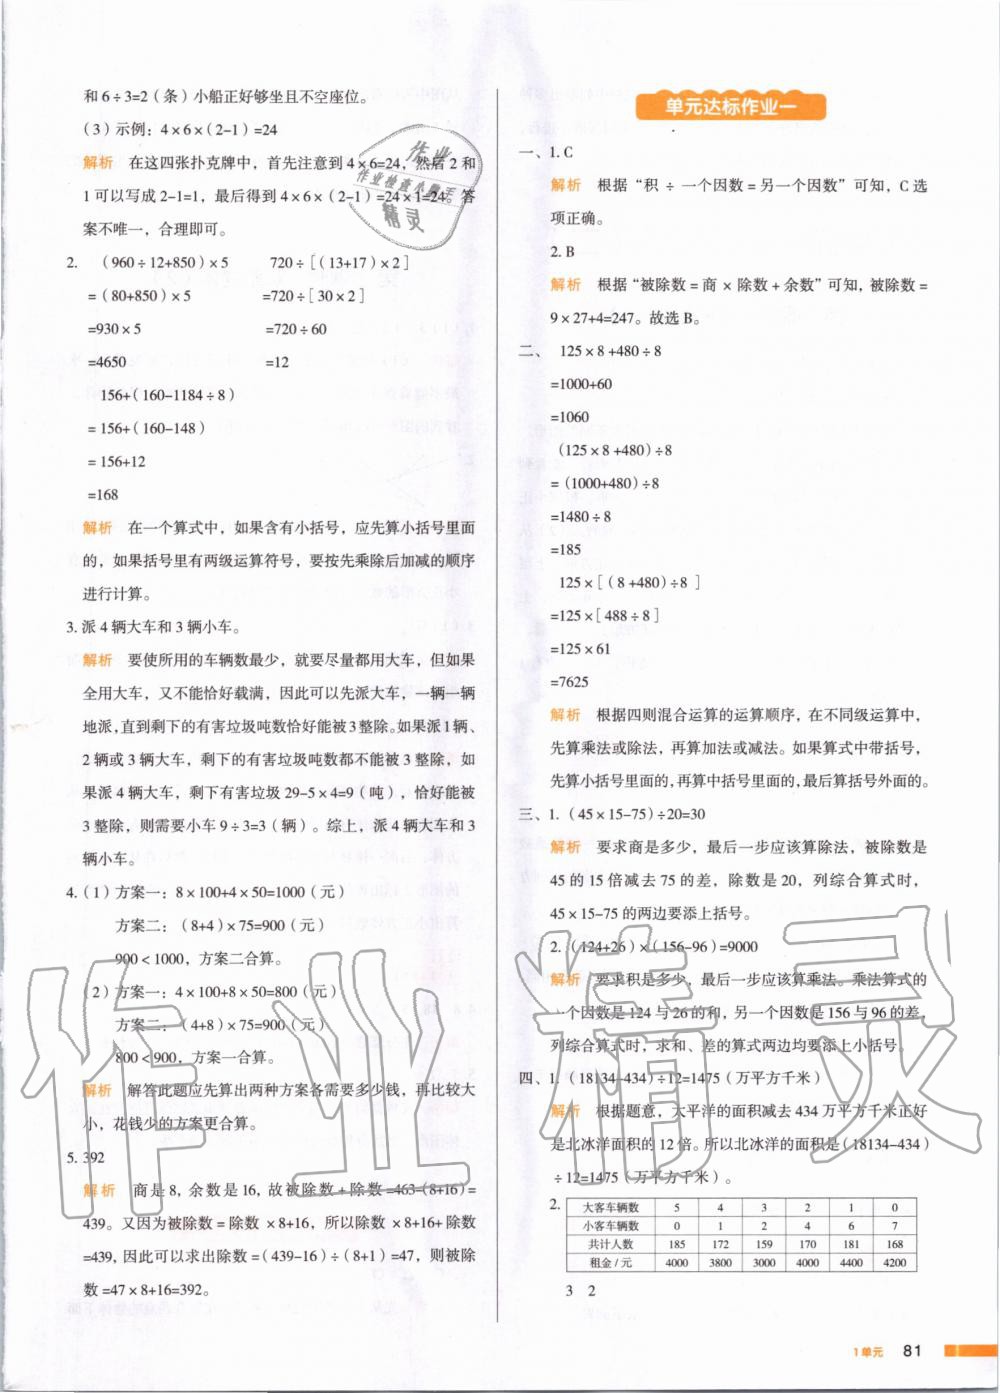 和6÷3=2（条）小船正好够坐且不空座位。
（3）示例：4×6×(2-1)=24
解析 在这四张扑克牌中，首先注意到4×6=24，然后2和
1可以写成2-1=1，最后得到4×6×(2-1)=24×1=24。答
案不唯一，合理即可。
2. (960÷12+850)×5 720÷[(13+17)×2]
=(80+850)×5 =720÷[30×2]
=930×5 =720÷60
=4650 =12
156+(160-1184÷8)
=156+(160-148)
=156+12
=168
解析 在一个算式中，如果含有小括号，应先算小括号里面
的，如果括号里有两级运算符号，要按先乘除后加减的顺序
进行计算。
3. 派4辆大车和3辆小车。
解析 要使所用的车辆数最少，就要尽量都用大车，但如果
全用大车，又不能恰好载满，因此可以先派大车，一辆一辆
地派，直到剩下的有害垃圾吨数恰好能被3整除。如果派1辆、
2辆或3辆大车，剩下的有害垃圾吨数都不能被3整除，如
果派4辆大车，剩下有害垃圾29-5×4=9（吨），恰好能被
3整除，则需要小车9÷3=3（辆）。综上，派4辆大车和3
辆小车。
4.（1）方案一：8×100+4×50=1000（元）
方案二：(8+4)×75=900（元）
900＜1000，方案二合算。
（2）方案一：4×100+8×50=800（元）
方案二：(4+8)×75=900（元）
800＜900，方案一合算。
解析 解答此题应先算出两种方案各需要多少钱，再比较大
小，花钱少的方案更合算。
5. 392
解析 商是8，余数是16，故被除数+除数=463-(8+16)=
439。又因为被除数=除数×8+16，所以除数×8+16+除数
=439，因此可以求出除数=(439-16)÷(8+1)=47，则被除
数=47×8+16=392。
单元达标作业一
一、1. C
解析 根据“积÷一个因数=另一个因数”可知，C选
项正确。
2. B
解析 根据“被除数=商×除数+余数”可知，被除数=
9×27+4=247。故选B。
二、 125×8+480÷8
=1000+60
=1060
(125×8+480)÷8
=(1000+480)÷8
=1480÷8
=185
125×[(8+480)÷8]
=125×[488÷8]
=125×61
=7625
解析 根据四则混合运算的运算顺序，在不同级运算中，
先算乘法或除法，再算加法或减法。如果算式中带括号，
先算小括号里面的，再算中括号里面的，最后算括号外面的。
三、1. (45×15-75)÷20=30
解析 要求商是多少，最后一步应该算除法，被除数是
45的15倍减去75的差，除数是20，列综合算式时，
45×15-75的两边要添上括号。
2. (124+26)×(156-96)=9000
解析 要求积是多少，最后一步应该算乘法。乘法算式的
一个因数是124与26的和，另一个因数是156与96的差，
列综合算式时，求和、差的算式两边均要添上小括号。
四、1. (18134-434)÷12=1475（万平方千米）
解析 根据题意，太平洋的面积减去434万平方千米正好
是北冰洋面积的12倍。所以北冰洋的面积是(18134-434)
÷12=1475（万平方千米）。
2. 大客车辆数 5 4 3 2 1 0
小客车辆数 0 1 2 4 6 7
共计人数 185 172 159 170 181 168
租金/元 4000 3800 3000 4000 4400 4200
3 2
1单元 81
作业
作业检查小能手
精灵
作业精灵